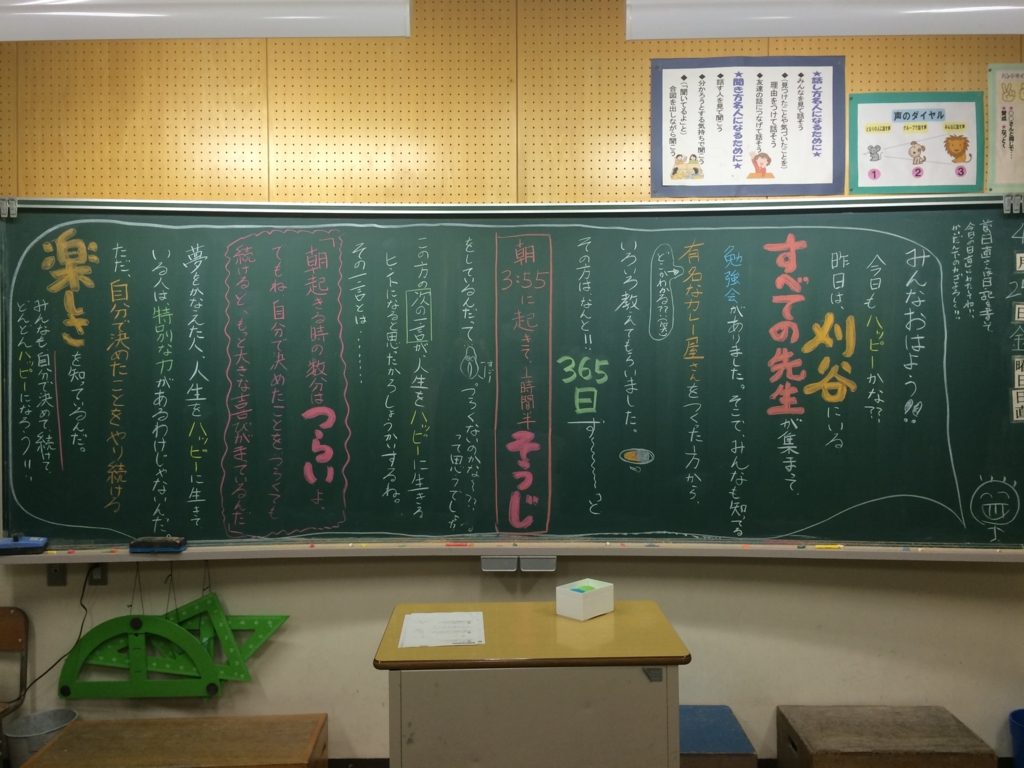 ★話し方名人になるために★
◆みんなを見て話そう
◆(見つけたことや気づいたことを)
理由をつけて話そう
◆友達の話につなげて話そう
★聞き方名人になるために★
◆話す人を見て聞こう
◆分かろうとする気持ちで聞こう
◆(「聞いてるよ」と)
合図を出しながら聞こう
声のダイヤル
1
2
3
みんなおはよう!!
今日もハッピーかな??
昨日は、刈谷にいる
すべての先生が集まって、
勉強会がありました。そこで、みんなも知ってる
有名なカレー屋さんをつくった方から、
どこかわかる??(笑)
いろいろ教えてもらいました。
その方はなんと!!
365日
ず〜〜〜〜〜っと
朝3:55に起きて、1時間半そうじ
をしているんだって
つらくないのかな〜??
って思うでしょ?
この方の次の一言が、人生をハッピーに生きる
ヒントになると思ったからしょうかいするね。
その一言とは……
「朝起きる時の数分はつらいよ、
でもね 自分で決めたことをつづけて
続けると、もっと大きな喜びがまっているんだ
夢をかなえた人、人生をハッピーに生きて
いる人は、特別な力があるわけじゃないんだ。
ただ、自分で決めたことをやり続ける
楽しさを知っているんだ。
みんなも自分で決めて続けて、
どんどんハッピーになろう!!